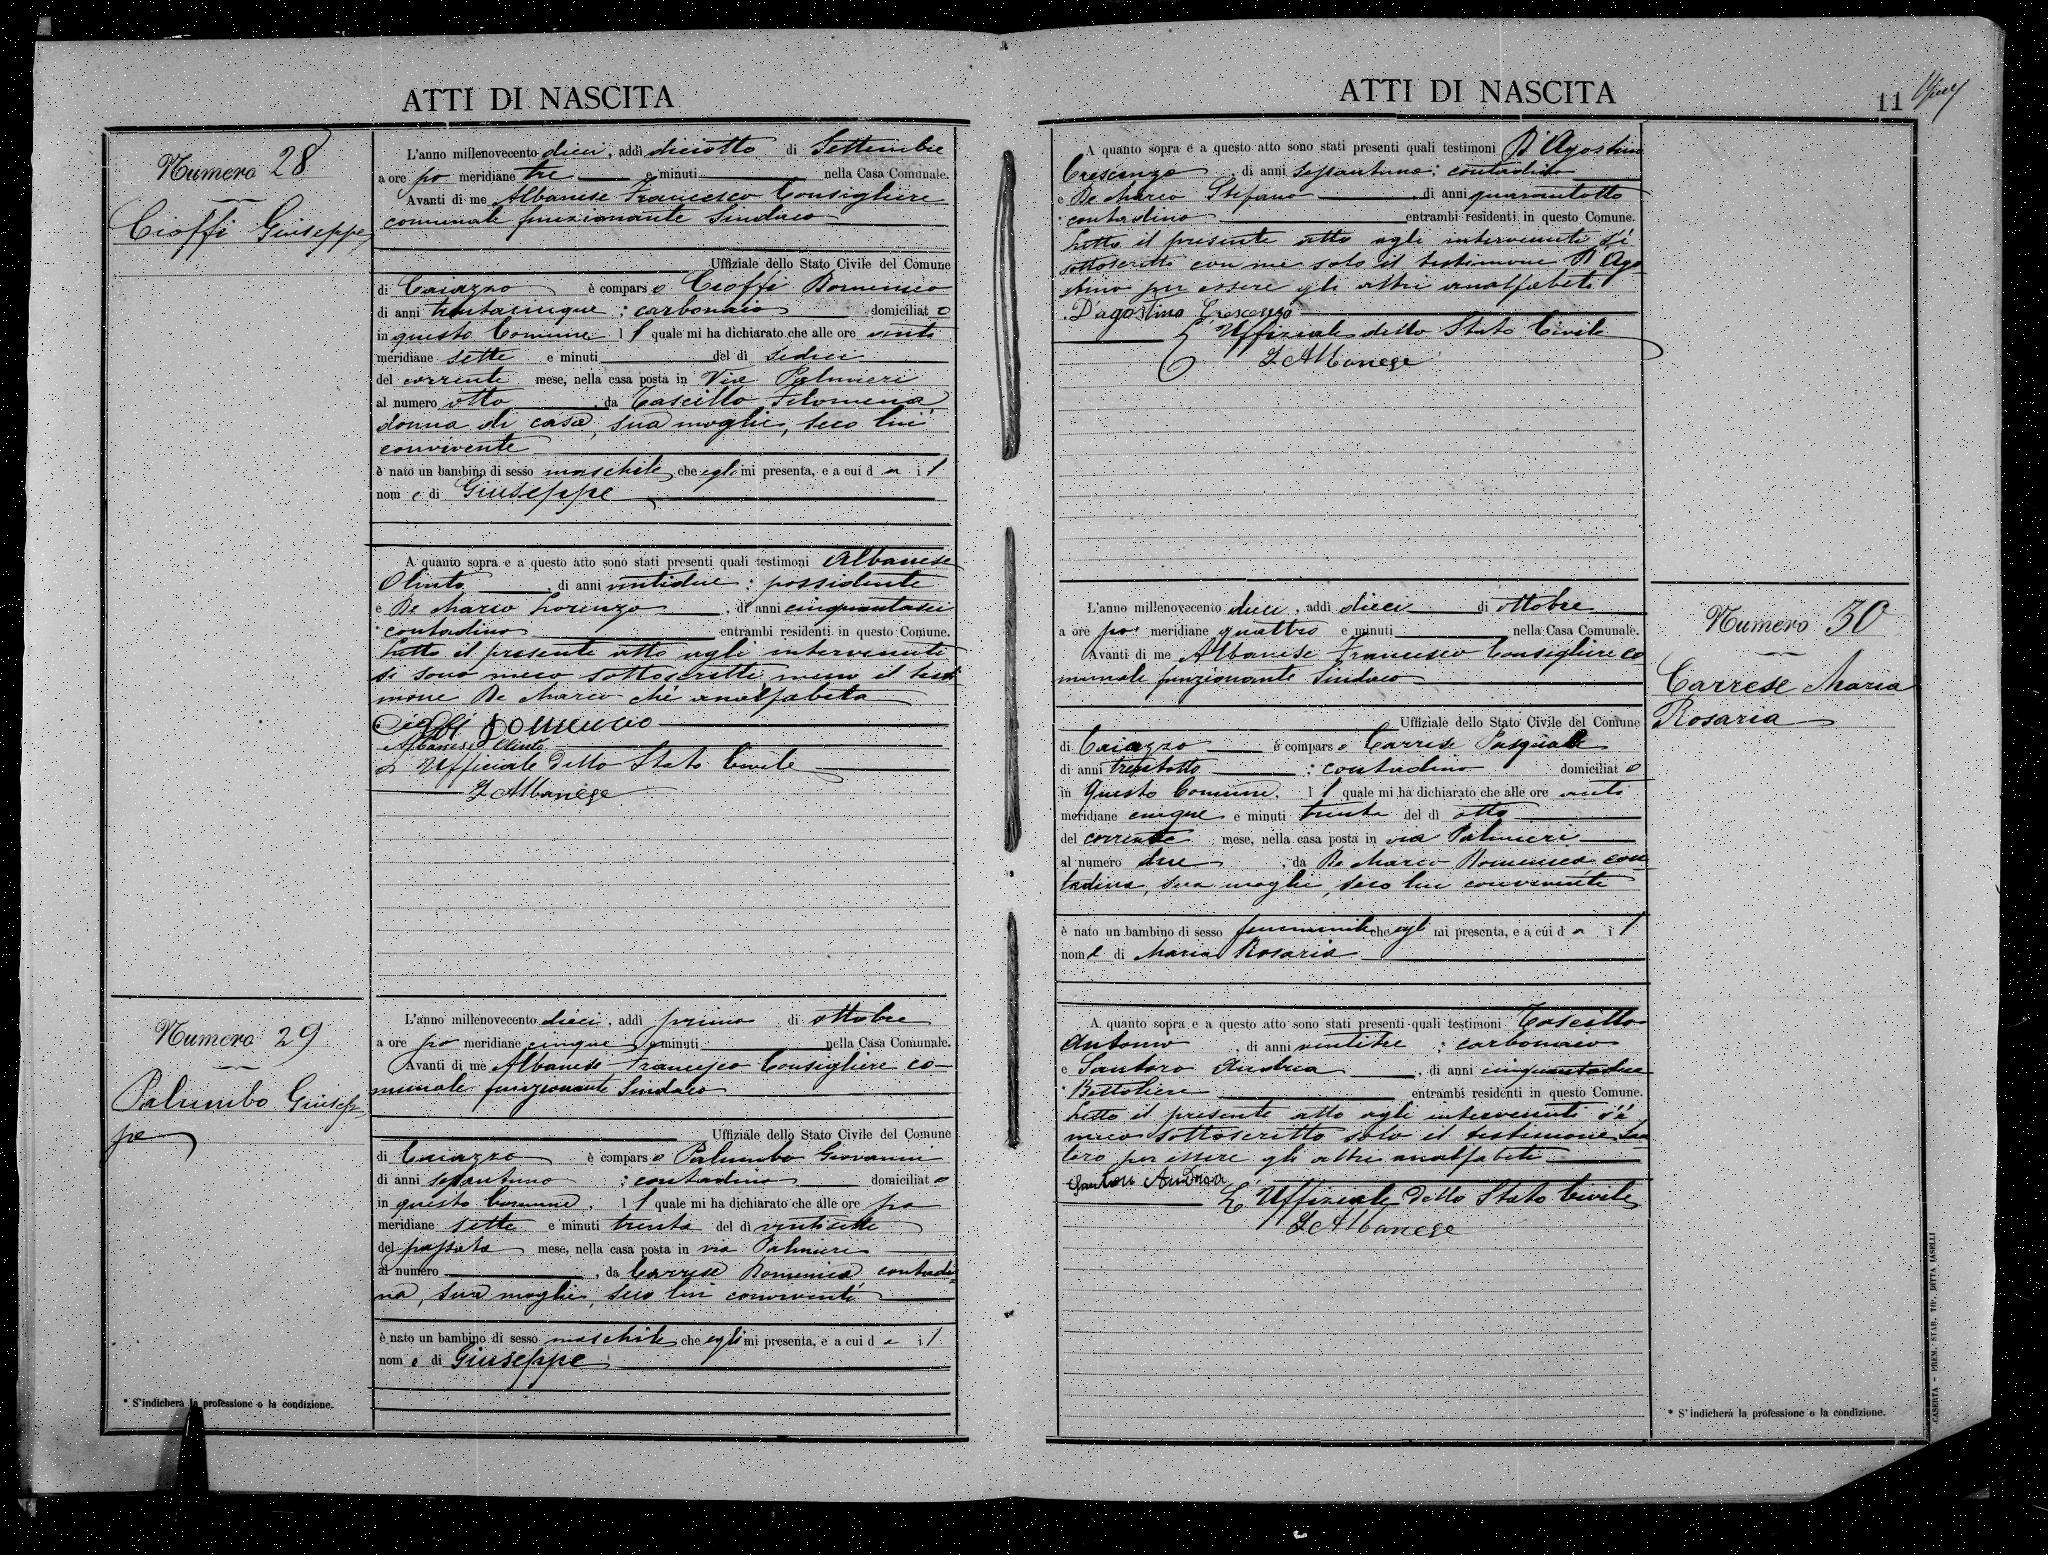 ATTI DI NASCITA
Numero 28
Cioffi Giuseppe
L'anno millenovecento dieci, addì diciotto di Settembre
a ore po meridiane tre e minuti nella Casa Comunale.
Avanti di me Albanese Francesco Consigliere
comunale funzionante Sindaco
Uffiziale dello Stato Civile del Comune
di Caiazzo è comparso Cioffi Domenico
di anni trentacinque : carbonaio domiciliato
in questo Comune l l quale mi ha dichiarato che alle ore anti
meridiane sette e minuti del dì sedici
del corrente mese, nella casa posta in Via Palmieri
al numero otto, da Tascillo Filomena
donna di casa, sua moglie, seco lui
convivente
è nato un bambino di sesso maschile che egli mi presenta, e a cui dà i l
nome di Giuseppe
A quanto sopra e a questo atto sono stati presenti quali testimoni Albanese
Olinto di anni ventidue : possidente
e De Marco Lorenzo, di anni cinquantasei
* contadino entrambi residenti in questo Comune.
Letto il presente atto agli intervenuti
si sono meco sottoscritti, meno il testi
mone De Marco chè analfabeta
Cioffi Domenico
Albanese Olinto
L'Ufficiale dello Stato Civile
F Albanese
Numero 29
Palumbo Giusep
pe
L'anno millenovecento dieci, addì primo di ottobre
a ore po meridiane cinque e minuti nella Casa Comunale.
Avanti di me Albanese Francesco Consigliere co-
munale funzionante Sindaco
Uffiziale dello Stato Civile del Comune
di Caiazzo è comparso Palumbo Giovanni
di anni sessantuno : contadino domiciliato
in questo Comune, l l quale mi ha dichiarato che alle ore po
meridiane sette e minuti trenta del dì ventisette
del passato mese, nella casa posta in via Palmieri
al numero, da Carrese Domenica, contadi-
na, sua moglie, seco lui convivente
è nato un bambino di sesso maschile che egli mi presenta, e a cui dà i l
nome di Giuseppe
* S'indicherà la professione o la condizione.
ATTI DI NASCITA
11
A quanto sopra e a questo atto sono stati presenti quali testimoni D'Agostino
Crescenzo, di anni sessantuno : contadino
e De Marco Stefano, di anni quarantotto
* contadino entrambi residenti in questo Comune.
Letto il presente atto agli intervenuti s'è
sottoscritto con me solo il testimone D'Ago
stino per essere gli altri analfabeti
D'agostino Crescenzo
L'Uffiziale dello Stato Civile
F Albanese
L'anno millenovecento dieci, addì dieci di ottobre
a ore po meridiane quattro e minuti nella Casa Comunale.
Avanti di me Albanese Francesco Consigliere co
munale funzionante Sindaco
Uffiziale dello Stato Civile del Comune
di Caiazzo è comparso Carrese Pasquale
di anni trentotto : contadino domiciliato
in questo Comune, l l quale mi ha dichiarato che alle ore anti
meridiane cinque e minuti trenta del dì otto
del corrente mese, nella casa posta in via Palmieri
al numero due, da De Marco Domenica, con
tadina, sua moglie, seco lui convivente
è nato un bambino di sesso femminile che egli mi presenta, e a cui dà i l
nome di Maria Rosaria
A quanto sopra e a questo atto sono stati presenti quali testimoni Tascillo
Antonio, di anni ventitre : carbonaio
e Santoro Andrea, di anni cinquantadue
* Bettoliere entrambi residenti in questo Comune.
Letto il presente atto agli intervenuti s'è
meco sottoscritto solo il testimone San
toro per essere gli altri analfabeti
Santoro Andrea
L'Uffiziale dello Stato Civile
F Albanese
Numero 30
Carrese Maria
Rosaria
* S'indicherà la professione o la condizione.
CASERTA - PREM. STAB. TIP. DITTA IASELLI